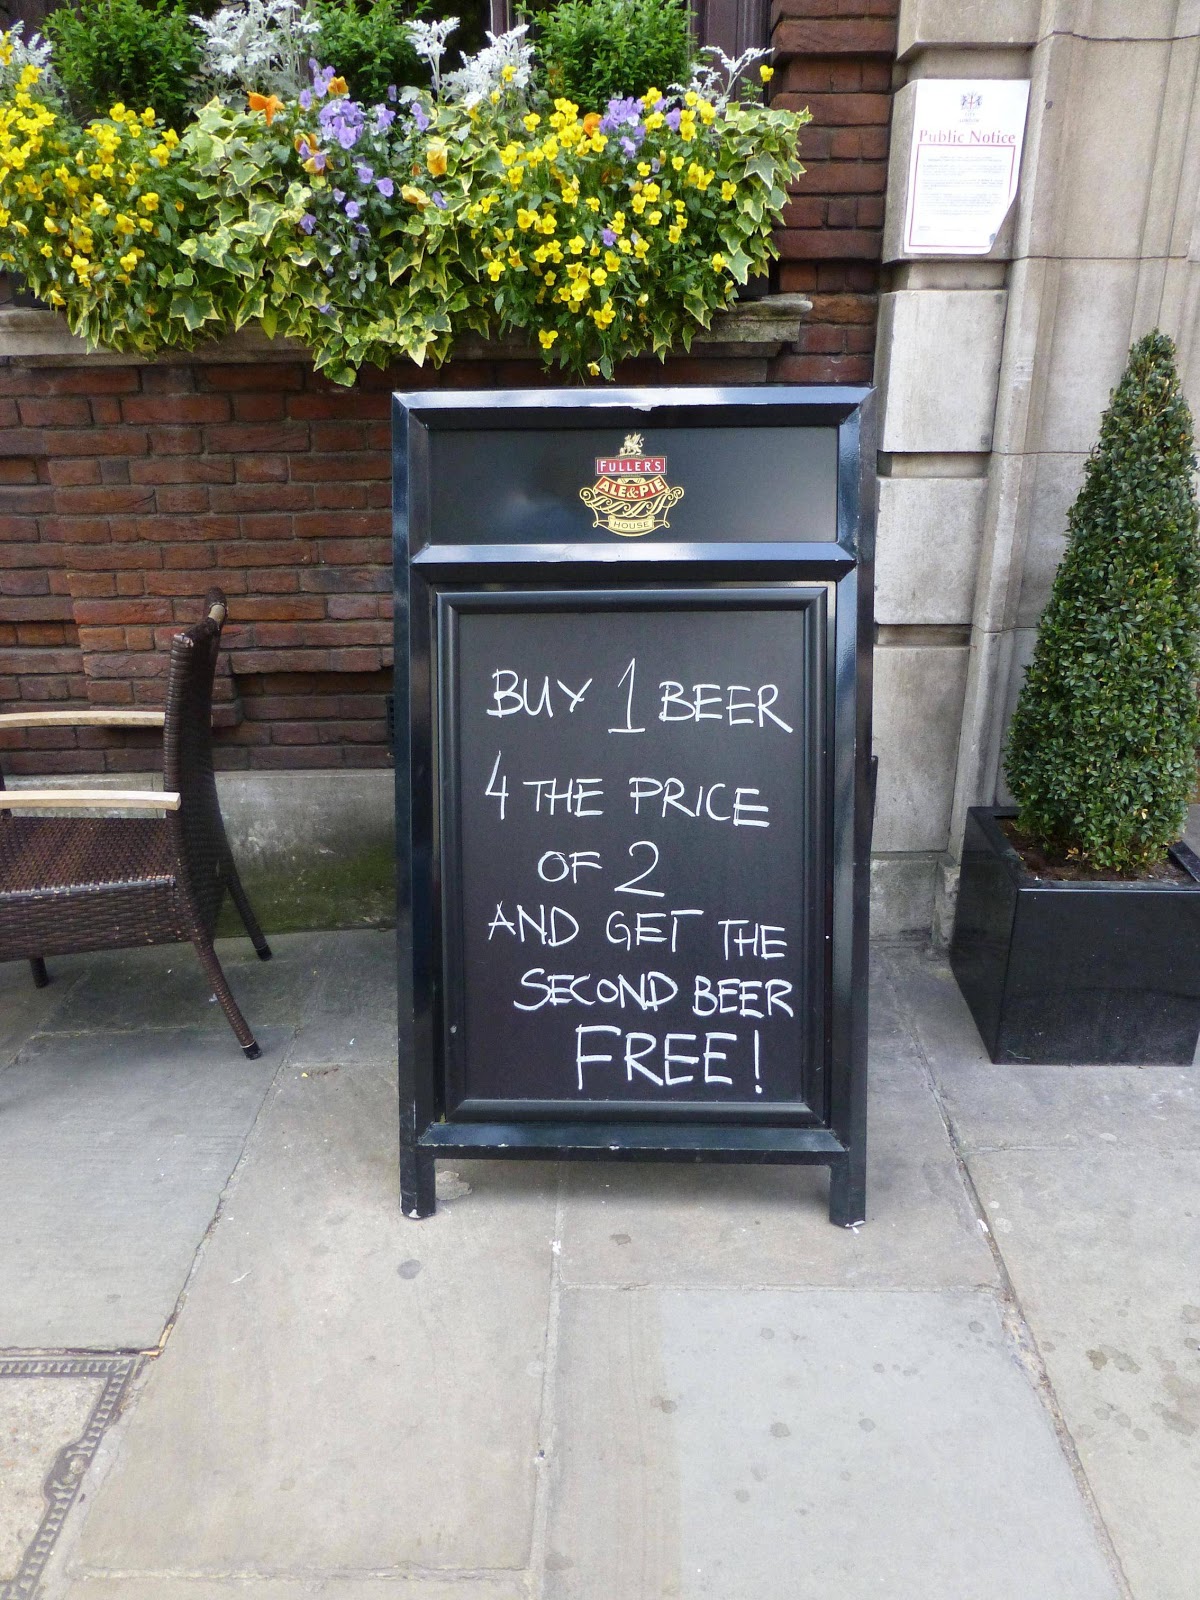 CITY
LONDON
Public Notice
FULLER'S
ALE & PIE
HOUSE
BUY 1 BEER
4 THE PRICE
OF 2
AND GET THE
SECOND BEER
FREE!